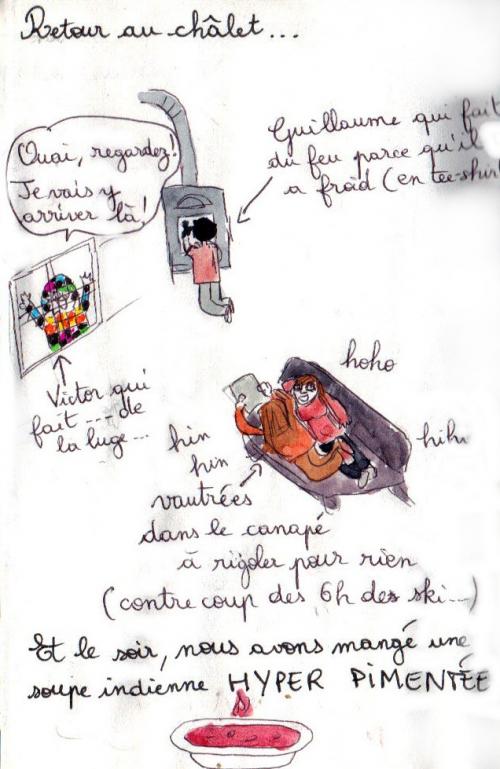 Retour au châlet...
Ouai, regardez!
Je vais y
arriver là!
Guillaume qui fait
du feu parce qu'il
a froid (en tee-shirt
Victor qui
fait ... de
la luge...
hoho
hihi
hin
hin
vautrées
dans le canapé
à rigoler pour rien
(contre coup des 6h des ski...)
Et le soir, nous avons mangé une
soupe indienne HYPER PIMENTÉE